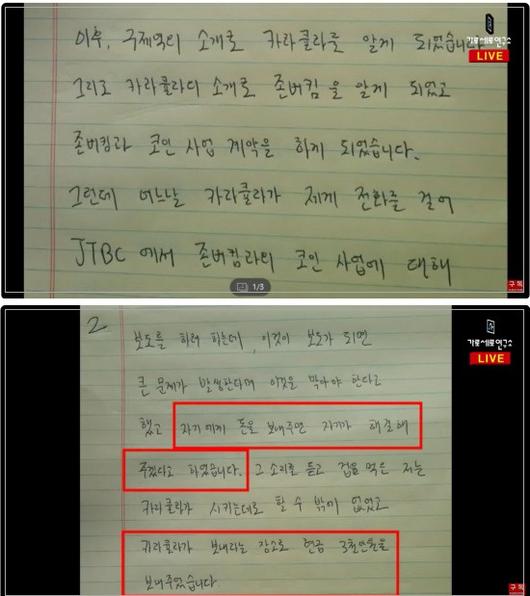 이후, 구제역의 소개로 카라큘라를 알게 되었습니다
그리고 카라큘라의 소개로 존버킴을 알게 되었고
존버킴과 코인 사업 계약을 하게 되었습니다.
그런데 어느날 카라큘라가 제게 전화를 걸어
JTBC 에서 존버킴과의 코인 사업에 대해
가로세로연구소
LIVE
1/3
구독
2
보도를 하려 하는데, 이것이 보도가 되면
큰 문제가 발생한다며 이것을 막아야 한다고
했고 자기에게 돈을 보내주면 자기가 해결해
주겠다고 하였습니다. 그 소리를 듣고 겁을 먹은 저는
카라큘라가 시키는데로 할 수 밖에 없었고
카라큘라가 보내라는 장소로 현금 3천만원을
보내주었습니다.
가로세로연구소
LIVE
구독